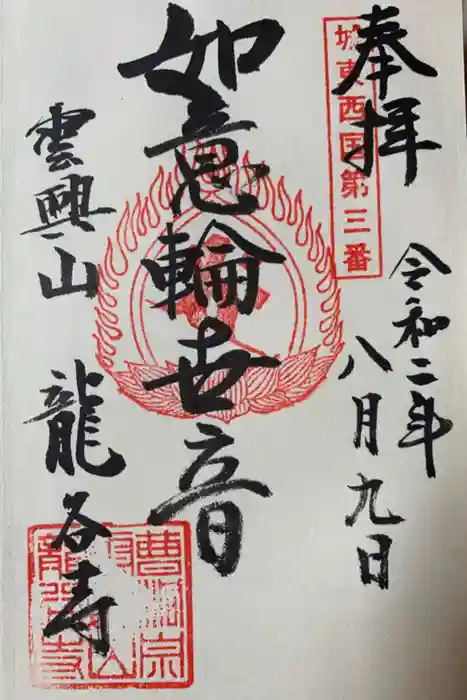 奉拝
城東西国第三番
令和二年
八月九日
如意輪世音
雲興山 龍谷寺
曹洞宗
雲興山
龍谷寺